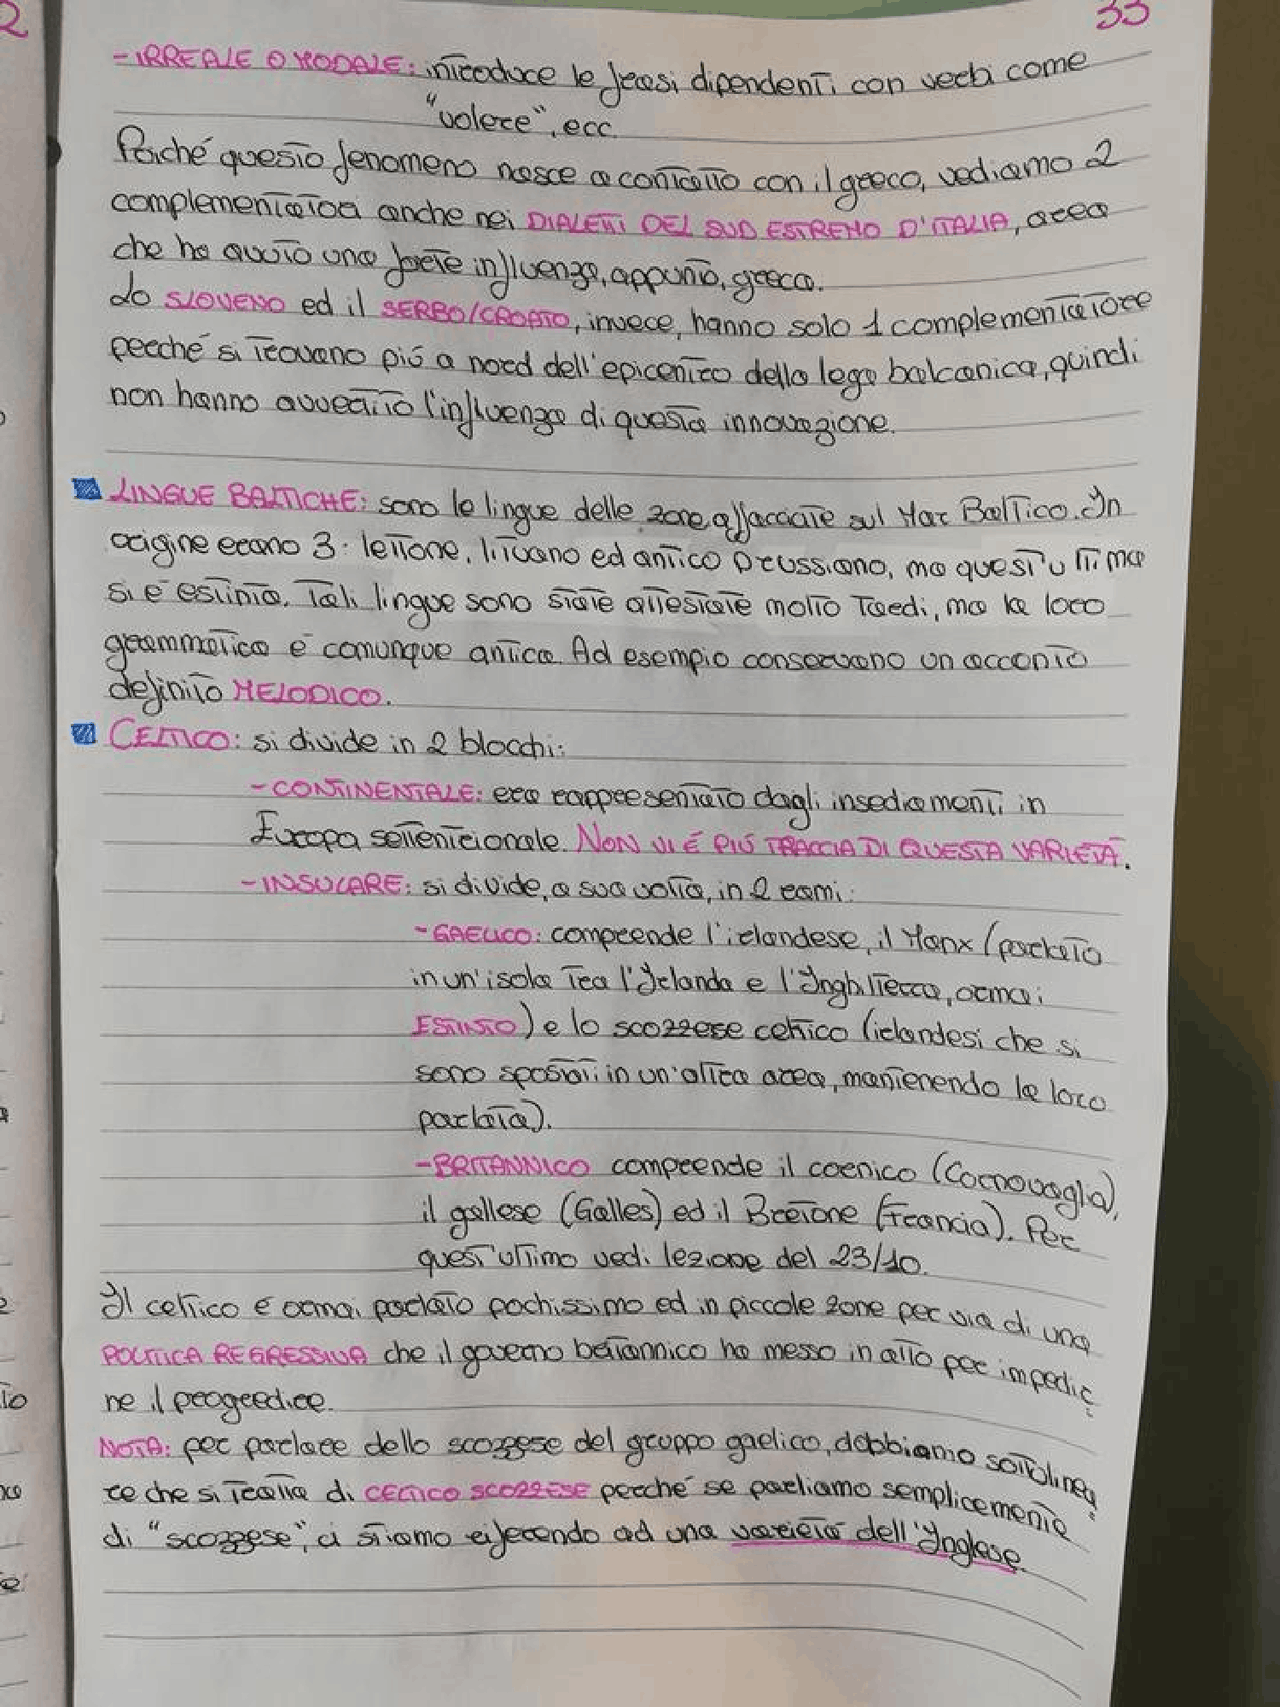 33
- IRREALE O MODALE: introduce le frasi dipendenti con verbi come
"volere", ecc.
Poiché questo fenomeno nasce a contatto con il greco, vediamo 2
complementatori anche nei DIALETTI DEL SUD ESTREMO D'ITALIA, area
che ha avuto una forte influenza, appunto, greca.
Lo SLOVENO ed il SERBO/CROATO, invece, hanno solo 1 complementatore
perché si trovano più a nord dell'epicentro della lega balcanica, quindi
non hanno avvertito l'influenza di questa innovazione.
LINGUE BALTICHE: sono le lingue delle zone affacciate sul Mar Baltico. In
origine erano 3: lettone, lituano ed antico prussiano, ma quest'ultima
si è estinta. Tali lingue sono state attestate molto tardi, ma la loro
grammatica è comunque antica. Ad esempio conservano un accento
definito MELODICO.
CELTICO: si divide in 2 blocchi:
- CONTINENTALE: era rappresentato dagli insediamenti in
Europa settentrionale. NON VI È PIÙ TRACCIA DI QUESTA VARIETÀ.
- INSULARE: si divide, a sua volta, in 2 rami:
- GAELICO: comprende l'irlandese, il Manx (parlato
in un'isola tra l'Irlanda e l'Inghilterra, ormai
ESTINTO) e lo scozzese celtico (irlandesi che si
sono spostati in un'altra area, mantenendo la loro
parlata).
- BRITANNICO comprende il cornico (Cornovaglia),
il gallese (Galles) ed il Bretone (Francia). Per
quest'ultimo vedi lezione del 23/10.
Il celtico è ormai parlato pochissimo ed in piccole zone per via di una
POLITICA REGRESSIVA che il governo britannico ha messo in atto per impedir
ne il progredire.
NOTA: per parlare dello scozzese del gruppo gaelico, dobbiamo sottolinea
re che si tratta di CELTICO SCOZZESE perché se parliamo semplicemente
di "scozzese", ci stiamo riferendo ad una varietà dell'Inglese.